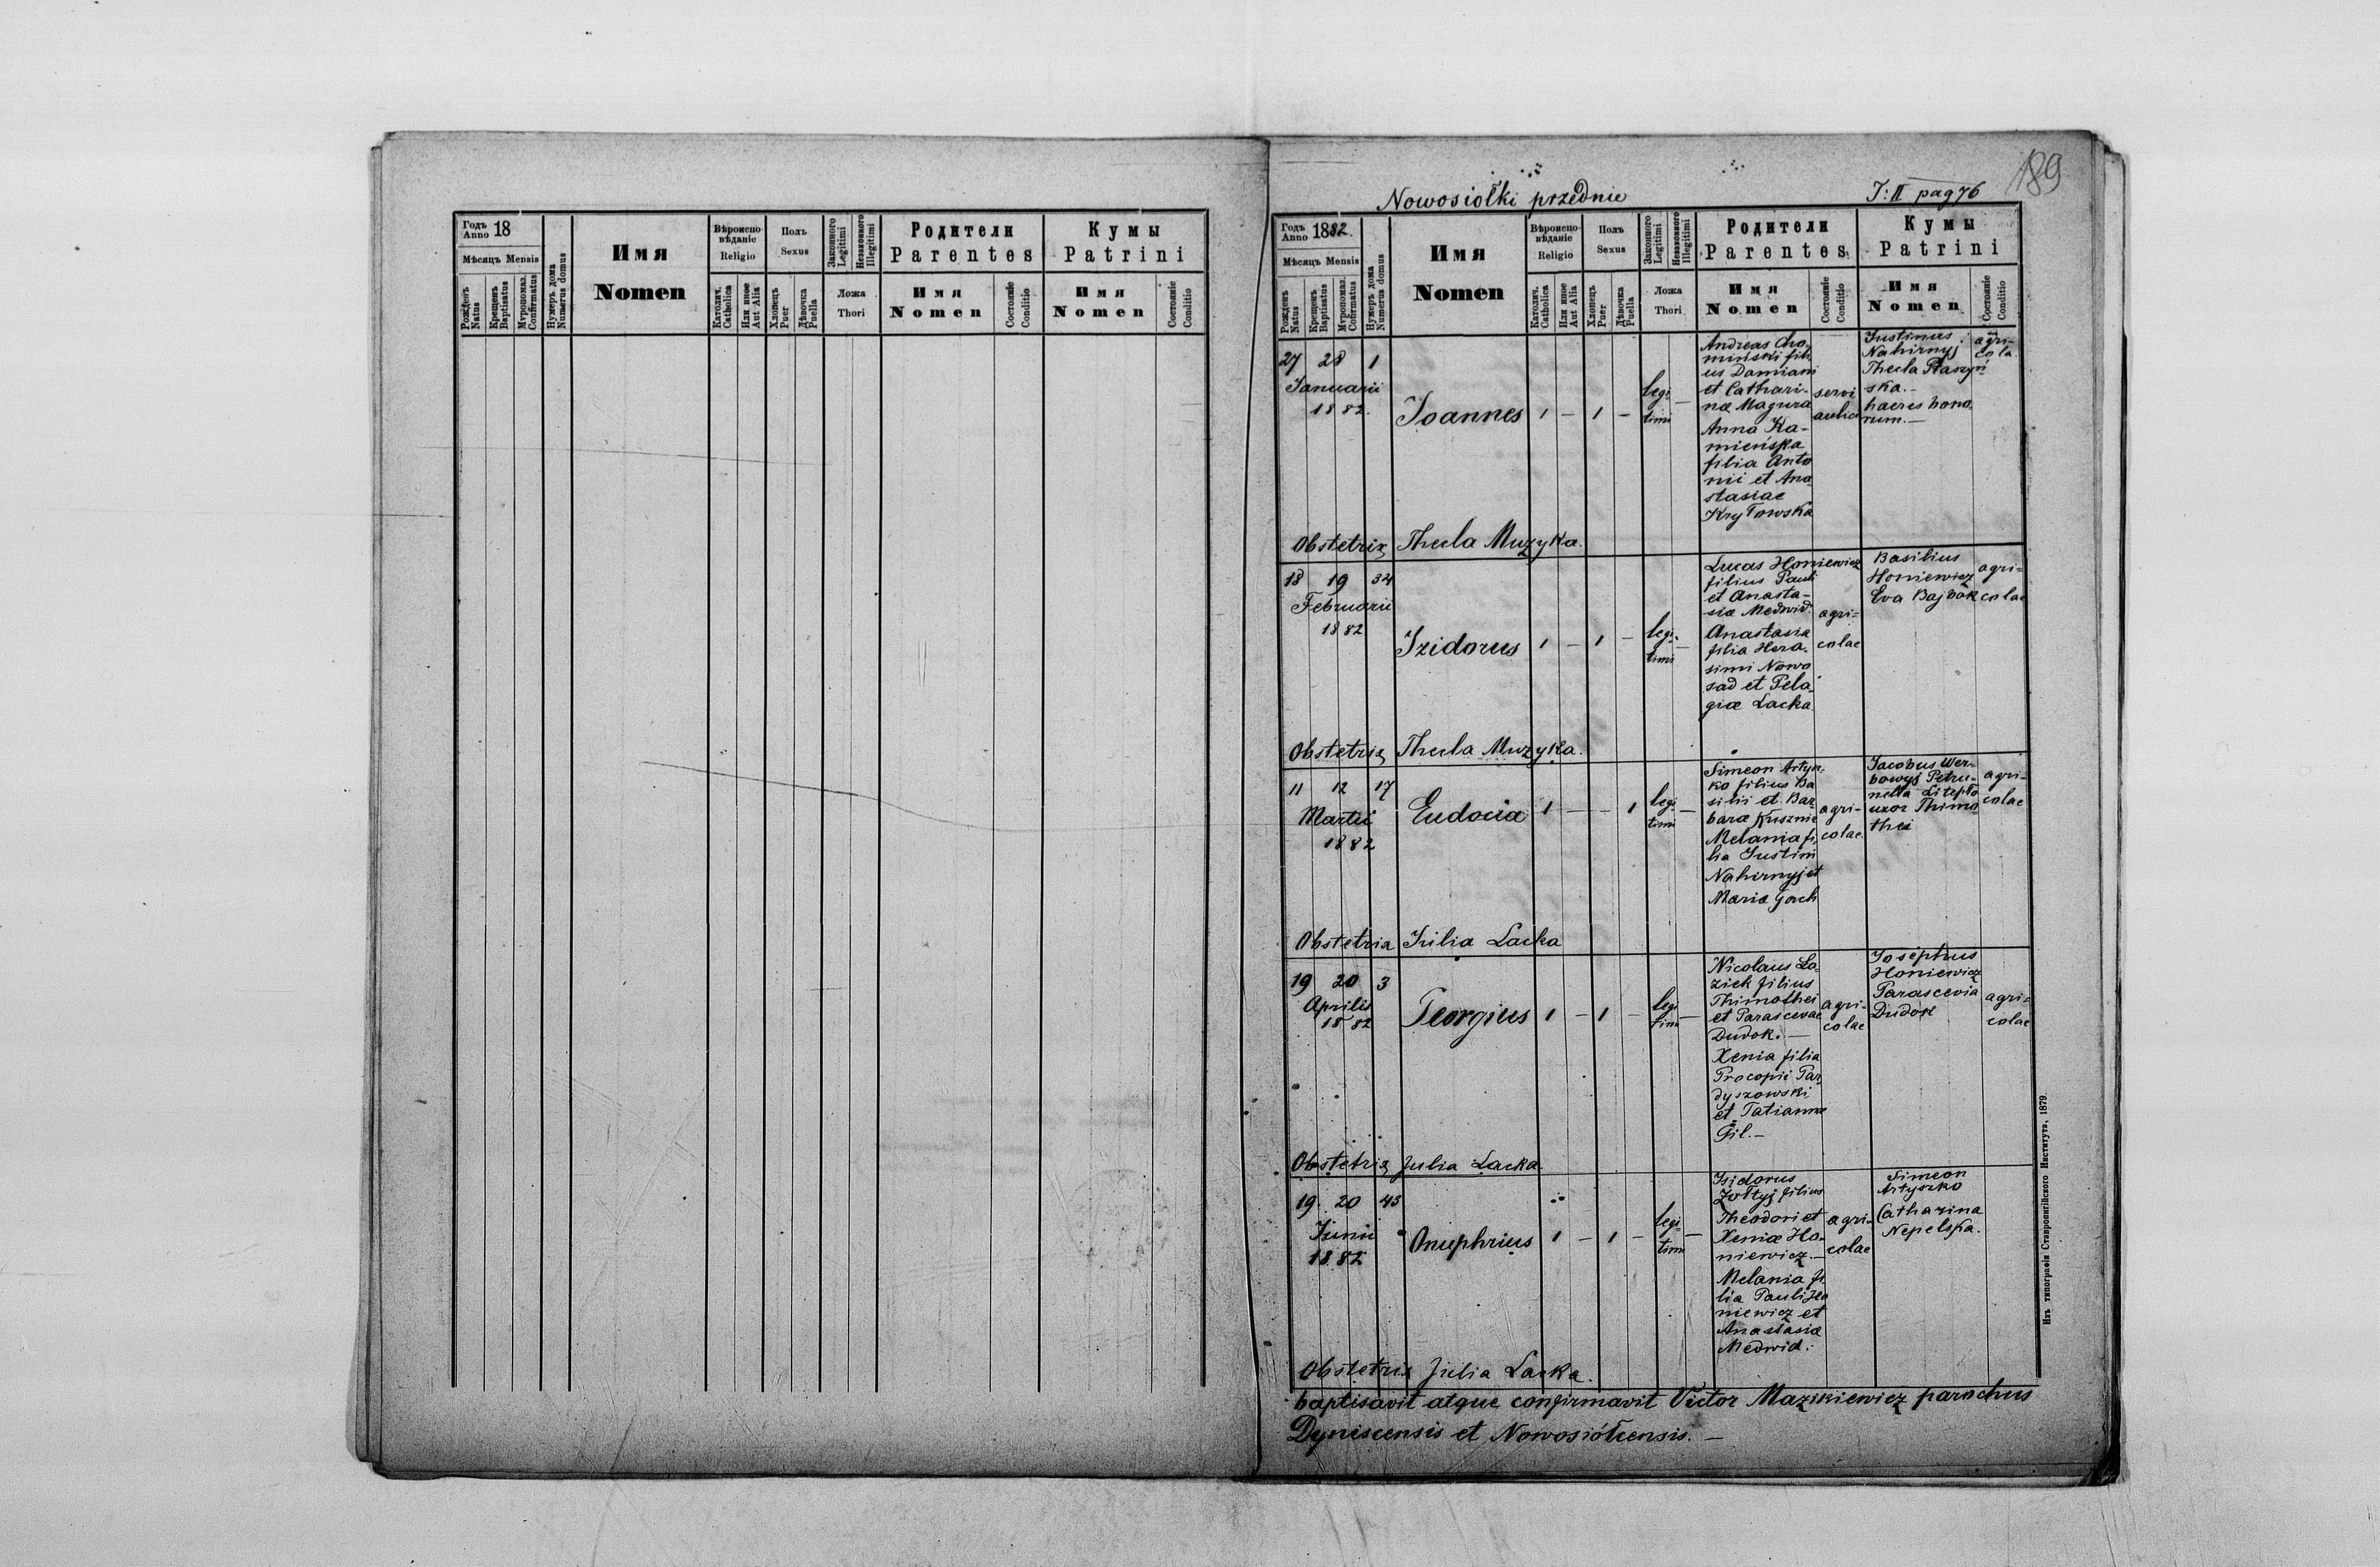 189
Nowosiołki przednie
T: II pag 76
Годъ Anno 18
Мѣсяцъ Mensis
Рожденъ Natus
Крещенъ Baptisatus
Мѵропомаз. Confirmatus
Нумеръ дома Numerus domus
Имя
Nomen
Вѣроиспо-
вѣданіе
Religio
Католич. Catholica
Или иное Aut Alia
Полъ
Sexus
Хлопецъ Puer
Дѣвочка Puella
Законного Legitimi
Незаконного Illegitimi
Ложа
Thori
Родители
Parentes
Имя
Nomen
Состояніе Conditio
Кумы
Patrini
Имя
Nomen
Состояніе Conditio
Годъ Anno 1882.
Мѣсяцъ Mensis
Рожденъ Natus
Крещенъ Baptisatus
Мѵропомаз. Cofirmatus
Нумеръ дома Numerus domus
Имя
Nomen
Вѣроиспо-
вѣданіе
Religio
Католич. Catholica
Или иное Aut Alia
Полъ
Sexus
Хлопецъ Puer
Дѣвочка Puella
Законного Legitimi
Незаконного Illegitimi
Ложа
Thori
Родители
Parentes
Имя
Nomen
Состояніе Conditio
Кумы
Patrini
Имя
Nomen
Состояніе Conditio
27 28 1
Januarii
1882.
Joannes 1 – 1 –
legi
timi –
Andreas Cho-
minski fili
us Damiani
et Cathari-
næ Magura
Anna Ka-
mieńska
filia Anto
nii et Ana-
stasiae
Kryłowska
servi
aulici
Justinus
Nahirnyj
Thecla Ptaszyń
ska.–
haeres bono
rum.–
agri-
cola.
Obstetrix Thecla Muzyka.
18 19 34
Februarii
1882
Izidorus 1 – 1 –
legi-
timi –
Lucas Honiewicz
filius Pauli
et Anasta-
siæ Medwid.
Anastasia
filia Hera-
simi Nowo
sad et Pela-
giæ Lacka.
agri-
colae
Basilius
Honiewicz
Eva Bajbak
agri-
colae
Obstetrix Thecla Muzyka.
11 12 17
Martii
1882
Eudocia 1 – – 1
legi
timi –
Simeon Artysz-
ko filius Ba
silii et Bar-
baræ Kusznir
Melania fi-
lia Justini
Nahirnyj et
Mariæ Goch
agri-
colae.
Jacobus Wer-
bowyj Petru-
nella
uxor Thimo
thei
agri-
colae
Obstetrix Julia Lacka
19 20 3
Aprilis
1882
Georgius 1 – 1 –
legi
timi –
Nicolaus Ło-
zick filius
Thimothei
et Parascevae
Dudok.–
Xenia filia
Procopii Par
dyszowski
et Tatiannæ
Gil.–
agri-
colae
Josephus
Honiewicz
Parascevia
Dudok
agri-
colae
Obstetrix Julia Lacka.
19 20 43
Junii
1882
Onuphrius 1 – 1 –
legi
timi –
Isidorus
Żołtyj filius
Theodori et
Xeniæ Ho-
niewicz.–
Melania fi
lia Pauli Ho
niewicz et
Anastasiæ
Medwid.
agri-
colae
Simeon
Artyszko
Catharina
Nepelska.
Obstetrix Julia Lacka.
baptisavit atque confirmavit Victor Mazikiewicz parochus
Dyniscensis et Nowosiółcensis.–
Изъ типографіи Ставропигійского Института, 1879.